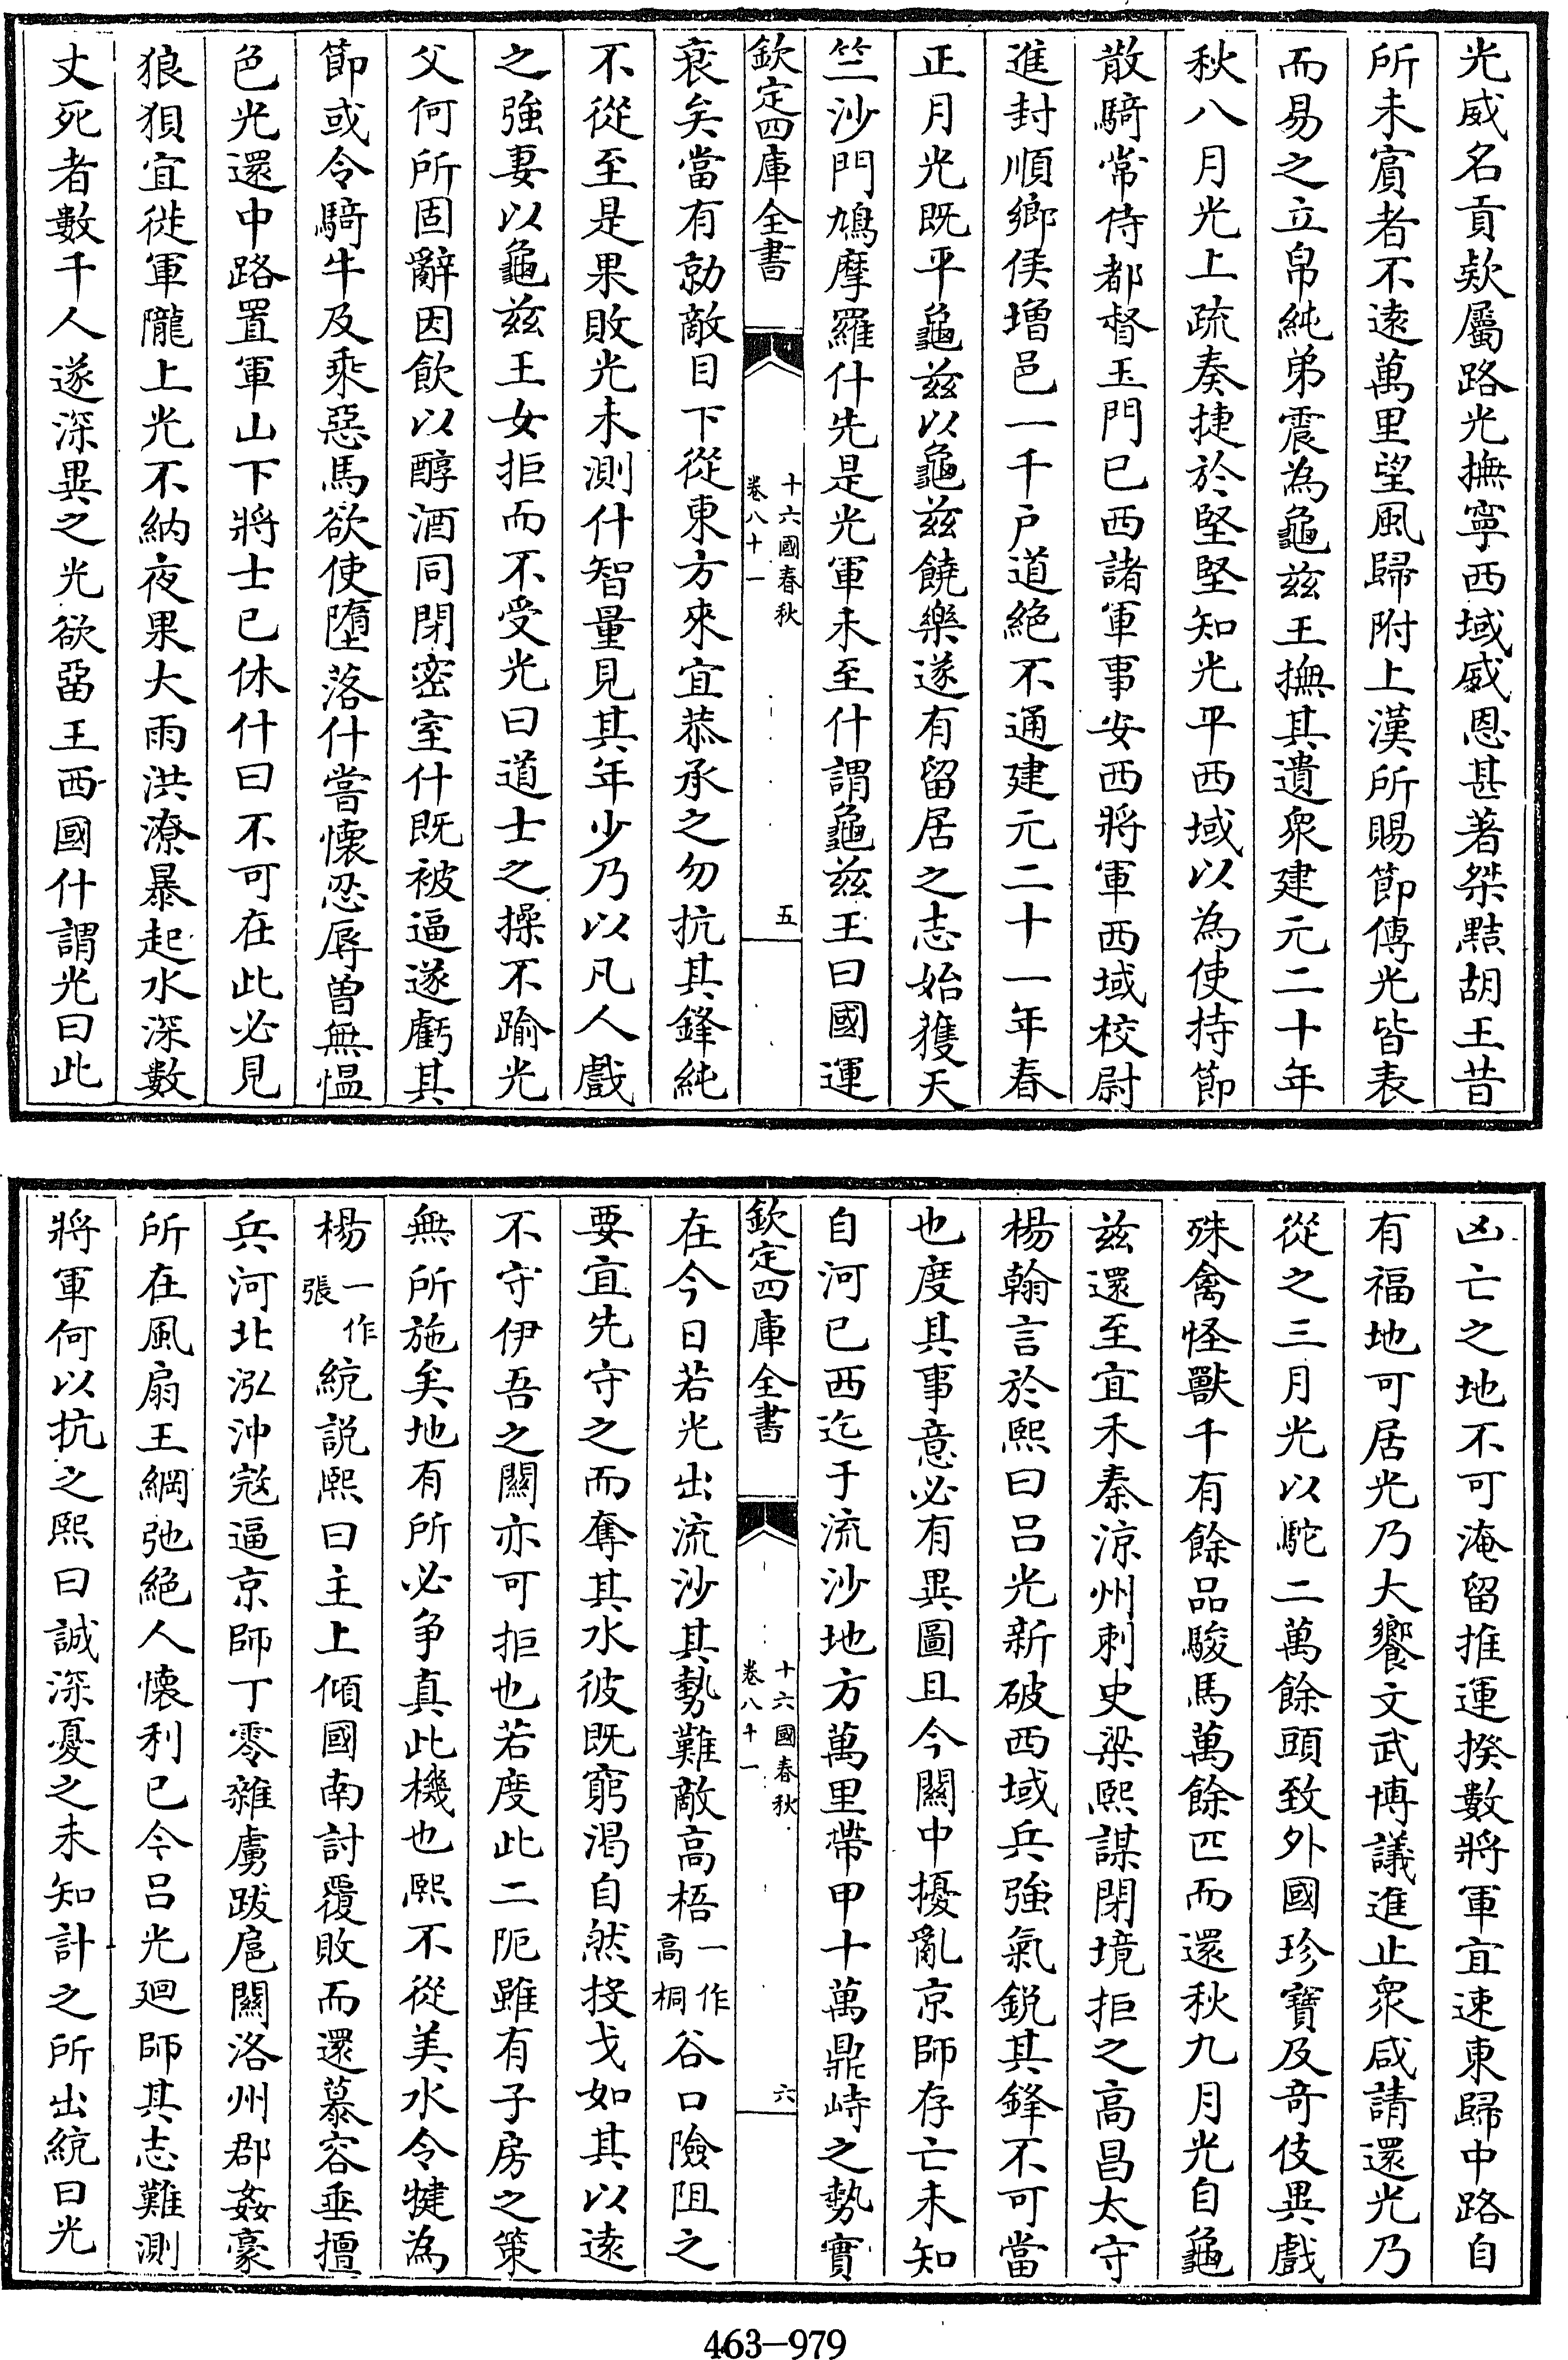 光威名貢欵屬路光撫寧西域威恩甚著桀黠胡王昔
所未賔者不逺萬里望風歸附上漢所賜節傳光皆表
而易之立帛純弟震為龜兹王撫其遺衆建元二十年
秋八月光上疏奏捷於堅堅知光平西域以為使持節
散騎常侍都督玉門已西諸軍事安西將軍西域校尉
進封順鄉侯增邑一千户道絶不通建元二十一年春
正月光既平龜兹以龜兹饒樂遂有留居之志始獲天
竺沙門鳩摩羅什先是光軍未至什謂龜兹王曰國運
欽定四庫全書
十六國春秋
卷八十一
五
衰矣當有勍敵日下從東方來宜恭承之勿抗其鋒純
不從至是果敗光未測什智量見其年少乃以凡人戲
之強妻以龜兹王女拒而不受光曰道士之操不踰光
父何所固辭因飲以醇酒同閉密室什既被逼遂虧其
節或令騎牛及乘惡馬欲使墮落什嘗懐忍辱曽無愠
色光還中路置軍山下將士已休什曰不可在此必見
狼狽宜徙軍隴上光不納夜果大雨洪潦暴起水深數
丈死者數千人遂深異之光欲畱王西國什謂光曰此
凶亡之地不可淹留推運揆數將軍宜速東歸中路自
有福地可居光乃大饗文武博議進止衆咸請還光乃
從之三月光以駝二萬餘頭致外國珍寶及竒伎異戲
殊禽怪獸千有餘品駿馬萬餘匹而還秋九月光自龜
兹還至宜禾秦涼州刺史梁熙謀閉境拒之高昌太守
楊翰言於熙曰吕光新破西域兵強氣鋭其鋒不可當
也度其事意必有異圖且今闗中擾亂京師存亡未知
自河已西迄于流沙地方萬里帶甲十萬鼎峙之勢實
欽定四庫全書
十六國春秋
卷八十一
六
在今日若光出流沙其勢難敵高梧一作高桐谷口險阻之
要宜先守之而奪其水彼既窮渴自然投戈如其以逺
不守伊吾之闗亦可拒也若度此二阨雖有子房之策
無所施矣地有所必争真此機也熙不從美水令犍為
楊一作張統説熙曰主上傾國南討覆敗而還慕容垂擅
兵河北泓沖宼逼京師丁零雜虜跋扈闗洛州郡姦豪
所在風扇王綱弛絶人懐利已今吕光廻師其志難測
將軍何以抗之熙曰誠深憂之未知計之所出統曰光
463-979